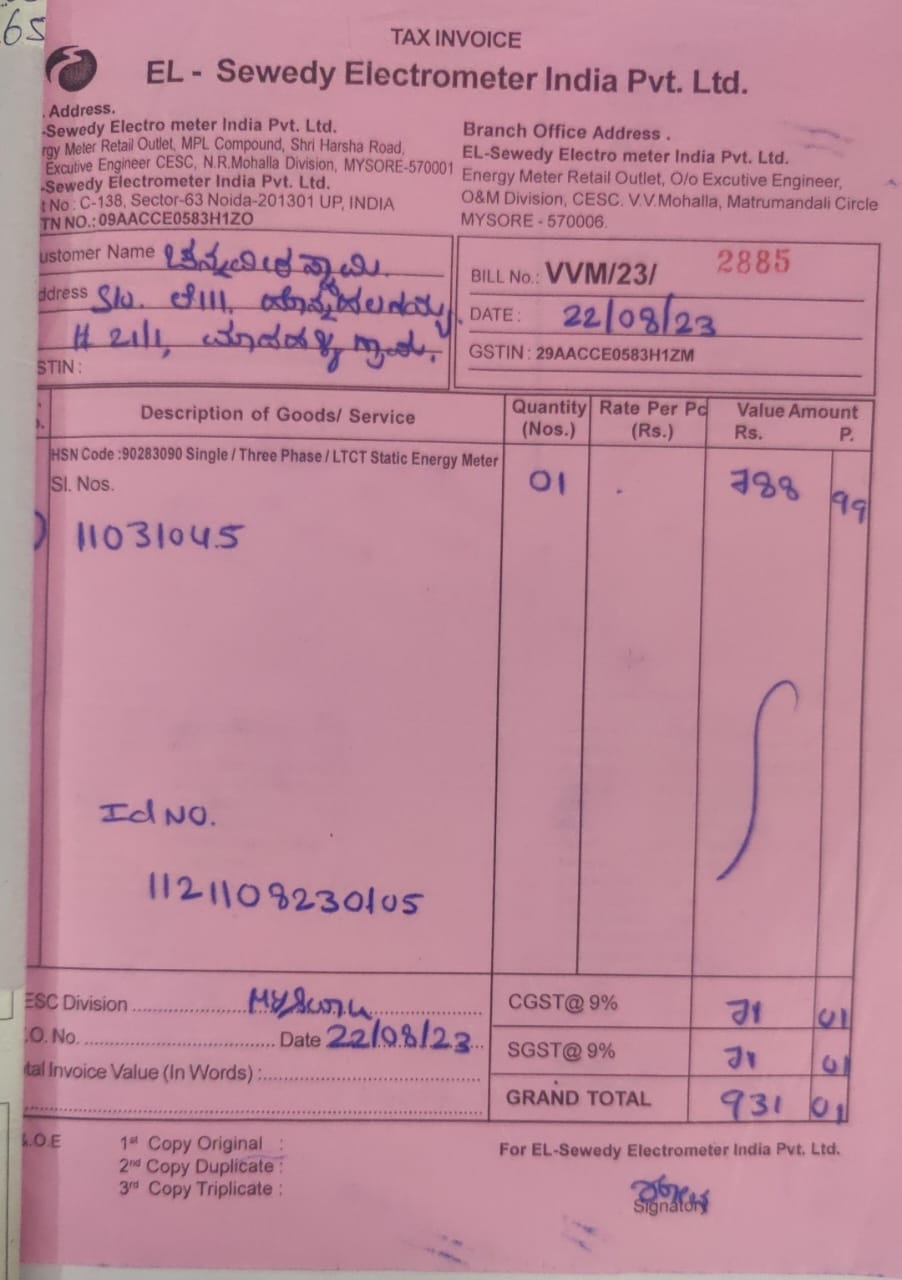 65
TAX INVOICE
EL - Sewedy Electrometer India Pvt. Ltd.
. Address.
-Sewedy Electro meter India Pvt. Ltd.
rgy Meter Retail Outlet, MPL Compound, Shri Harsha Road,
Excutive Engineer CESC, N.R.Mohalla Division, MYSORE-570001
-Sewedy Electrometer India Pvt. Ltd.
t No : C-138, Sector-63 Noida-201301 UP, INDIA
TN NO.: 09AACCE0583H1ZO
Branch Office Address .
EL-Sewedy Electro meter India Pvt. Ltd.
Energy Meter Retail Outlet, O/o Excutive Engineer,
O&M Division, CESC. V.V.Mohalla, Matrumandali Circle
MYSORE - 570006.
ustomer Name
ddress S/o.
# 21/1,
STIN :
BILL No.: VVM/23/ 2885
DATE : 22/08/23
GSTIN : 29AACCE0583H1ZM
Description of Goods/ Service Quantity (Nos.) Rate Per Pc (Rs.) Value Amount Rs. P.
HSN Code :90283090 Single / Three Phase / LTCT Static Energy Meter
Sl. Nos. 01 788 99
11031045
Id NO.
1121108230105
ESC Division Mysore CGST@ 9% 71 01
.O. No. Date 22/08/23 SGST@ 9% 71 01
tal Invoice Value (In Words) :
GRAND TOTAL 931 01
.O.E
1st Copy Original :
2nd Copy Duplicate :
3rd Copy Triplicate :
For EL-Sewedy Electrometer India Pvt. Ltd.
Signatory